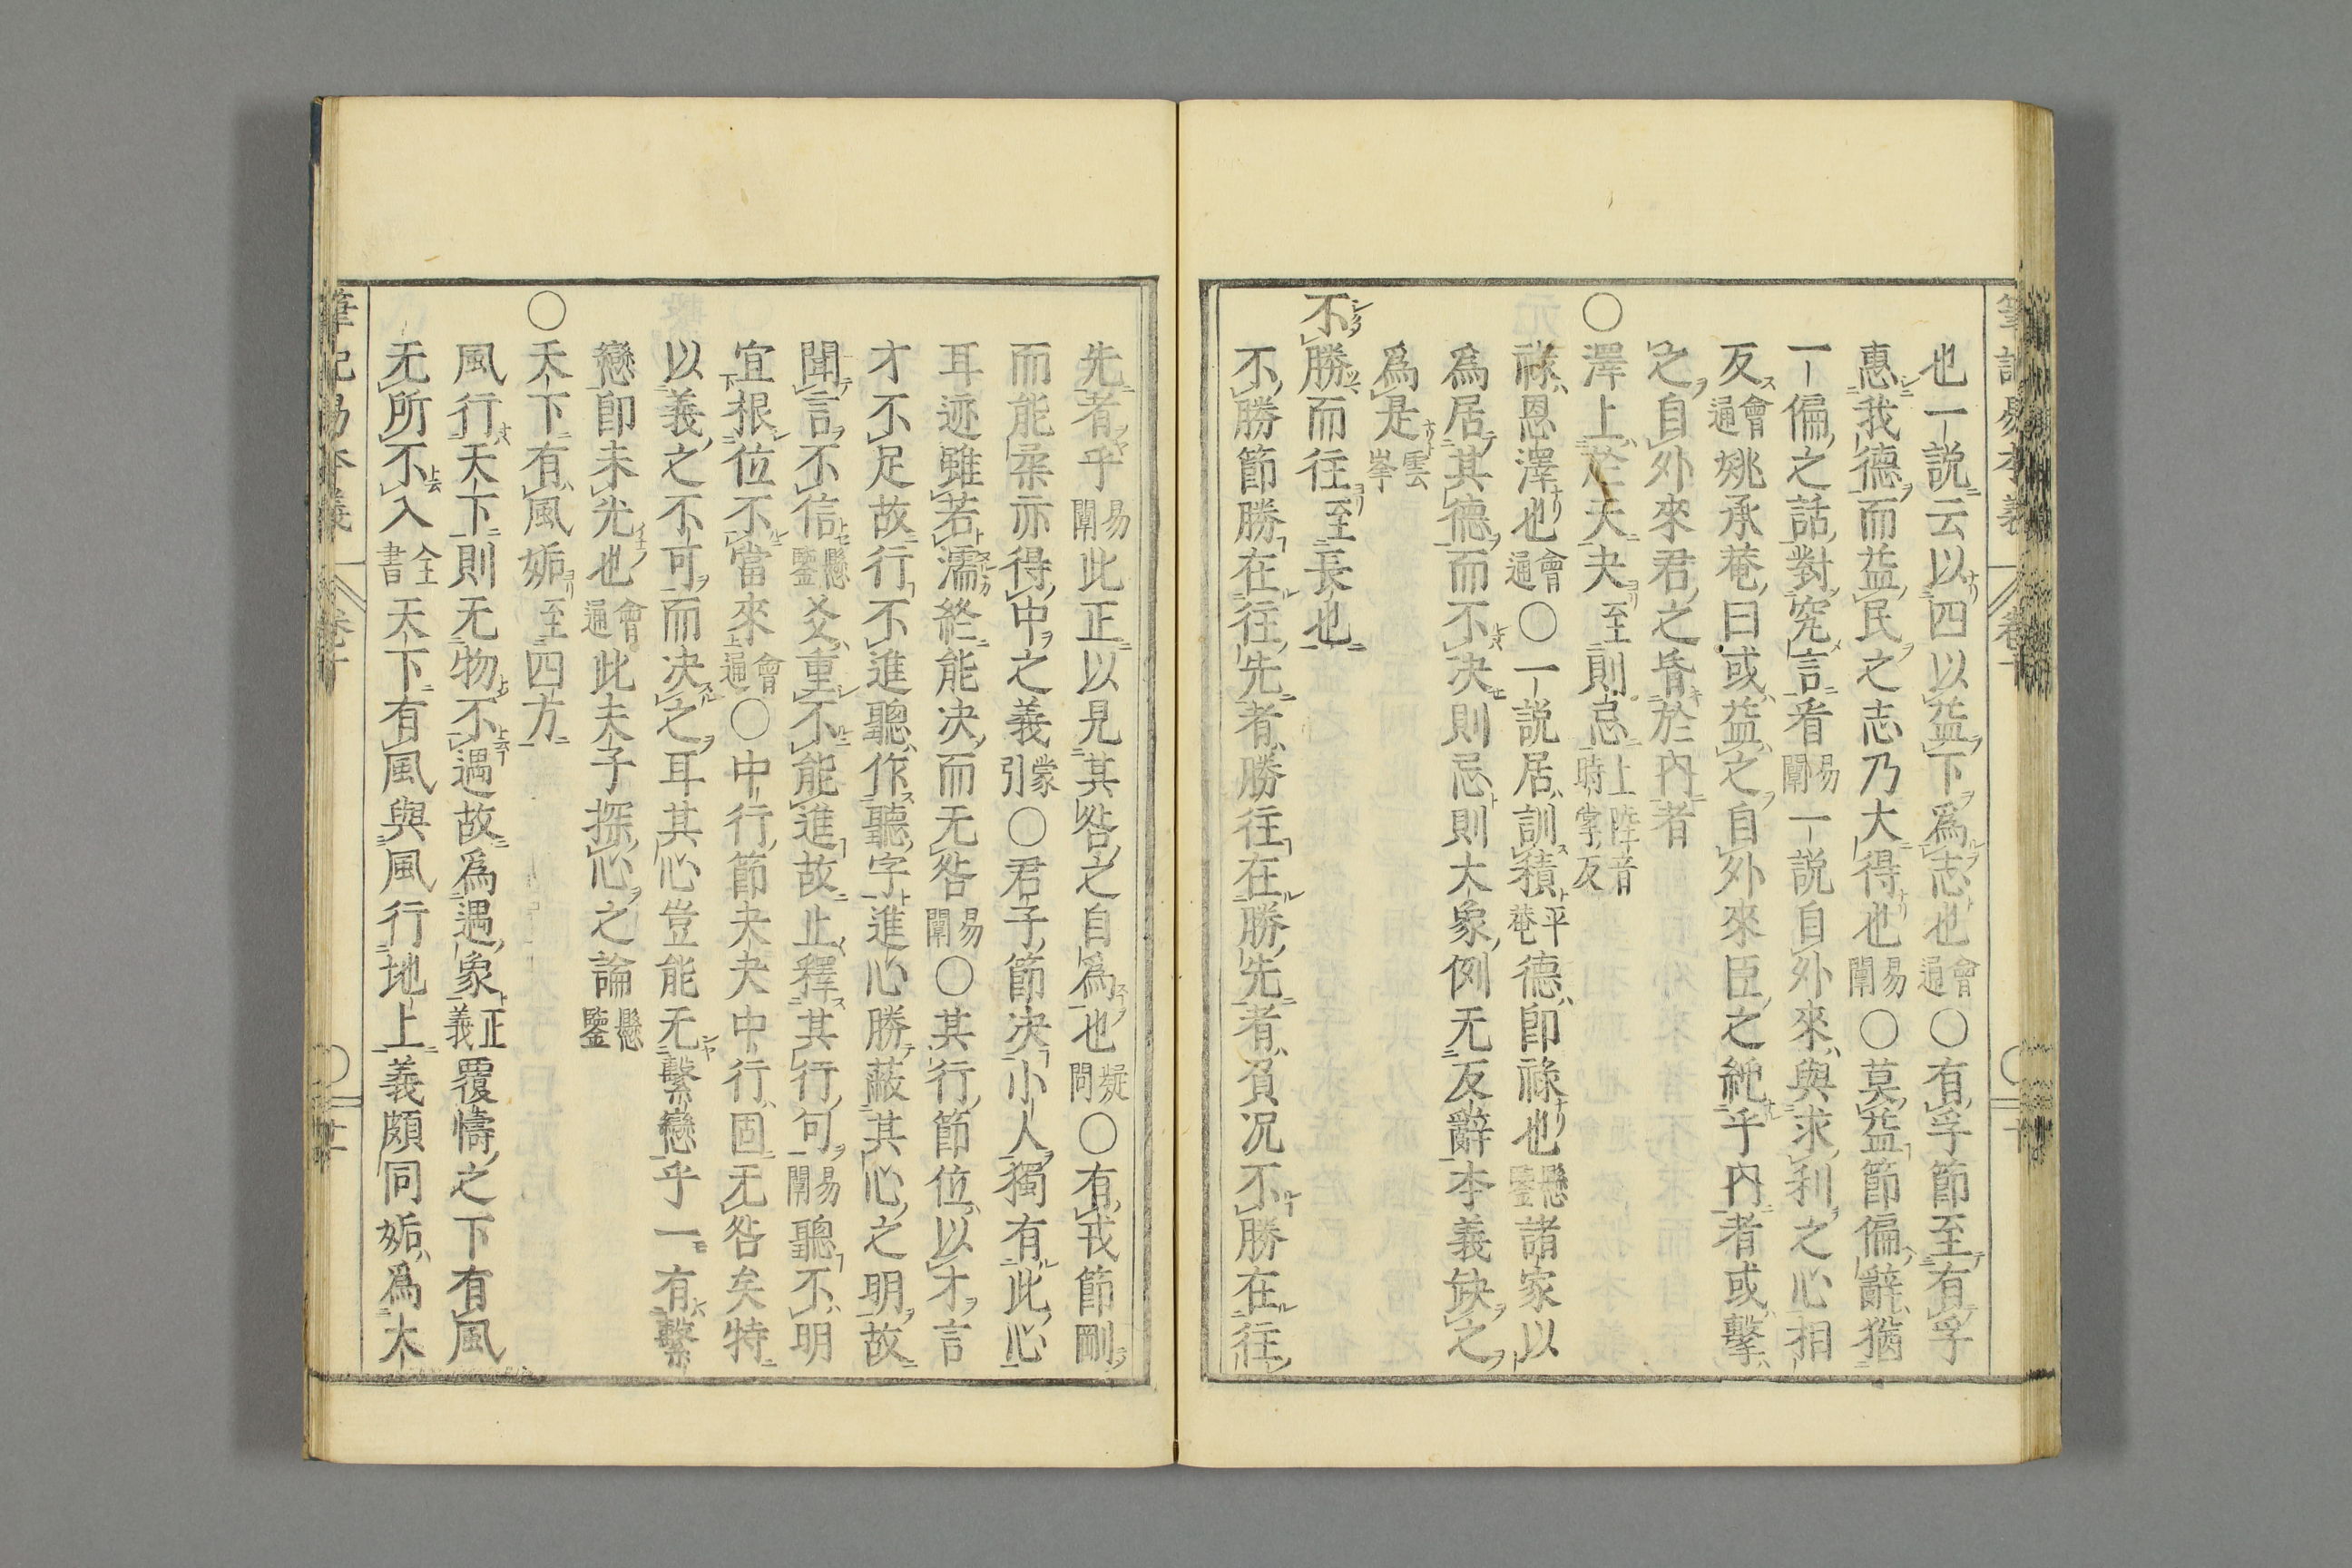 筆記易本義 卷十
也一說云以四以益下為志也會通○有孚節至有孚
惠我德而益民之志乃大得也易闡○莫益節偏辭猶
一偏之話對究言看易闡一說自外來與求利之心相
反會通姚承菴曰或益之自外來臣之純乎內者或擊
之自外來君之昏於內者
○澤上於天夬至則忌上陸音時掌反
祿恩澤也會通○一說居訓積平菴德即祿也懸鑒諸家以
為居其德而不决則忌則大象例无反辭本義缺之
為是雲峯
不勝而往至長也
不勝節勝在往先者勝往在勝先者負况不勝在往
先者乎易闡此正以見其咎之自為也疑問○有戎節剛
而能柔亦得中之義蒙引○君子節决小人獨有此心
耳迹雖若濡終能决而无咎易闡○其行節位以才言
才不足故行不進聰作聽字進心勝蔽其心之明故
聞言不信懸鑒爻重不能進故止釋其行句易闡聰不明
宜根位不當來會通○中行節夬夬中行固无咎矣特
以義之不可而决之耳其心豈能无繫戀乎一有繫
戀即未光也會通此夫子探心之論懸鑒
○天下有風姤至四方
風行天下則无物不遇故為遇象正義覆幬之下有風
无所不入全書天下有風與風行地上義頗同姤為大
筆記易本義 卷十